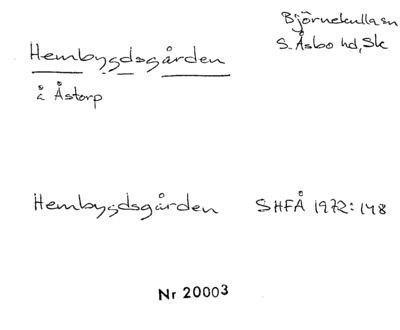 Björnekulla sn
S. Åsbo hd, Sk
Hembygdsgården
i Åstorp
Hembygdsgården SHFÅ 1972:148
Nr 20003